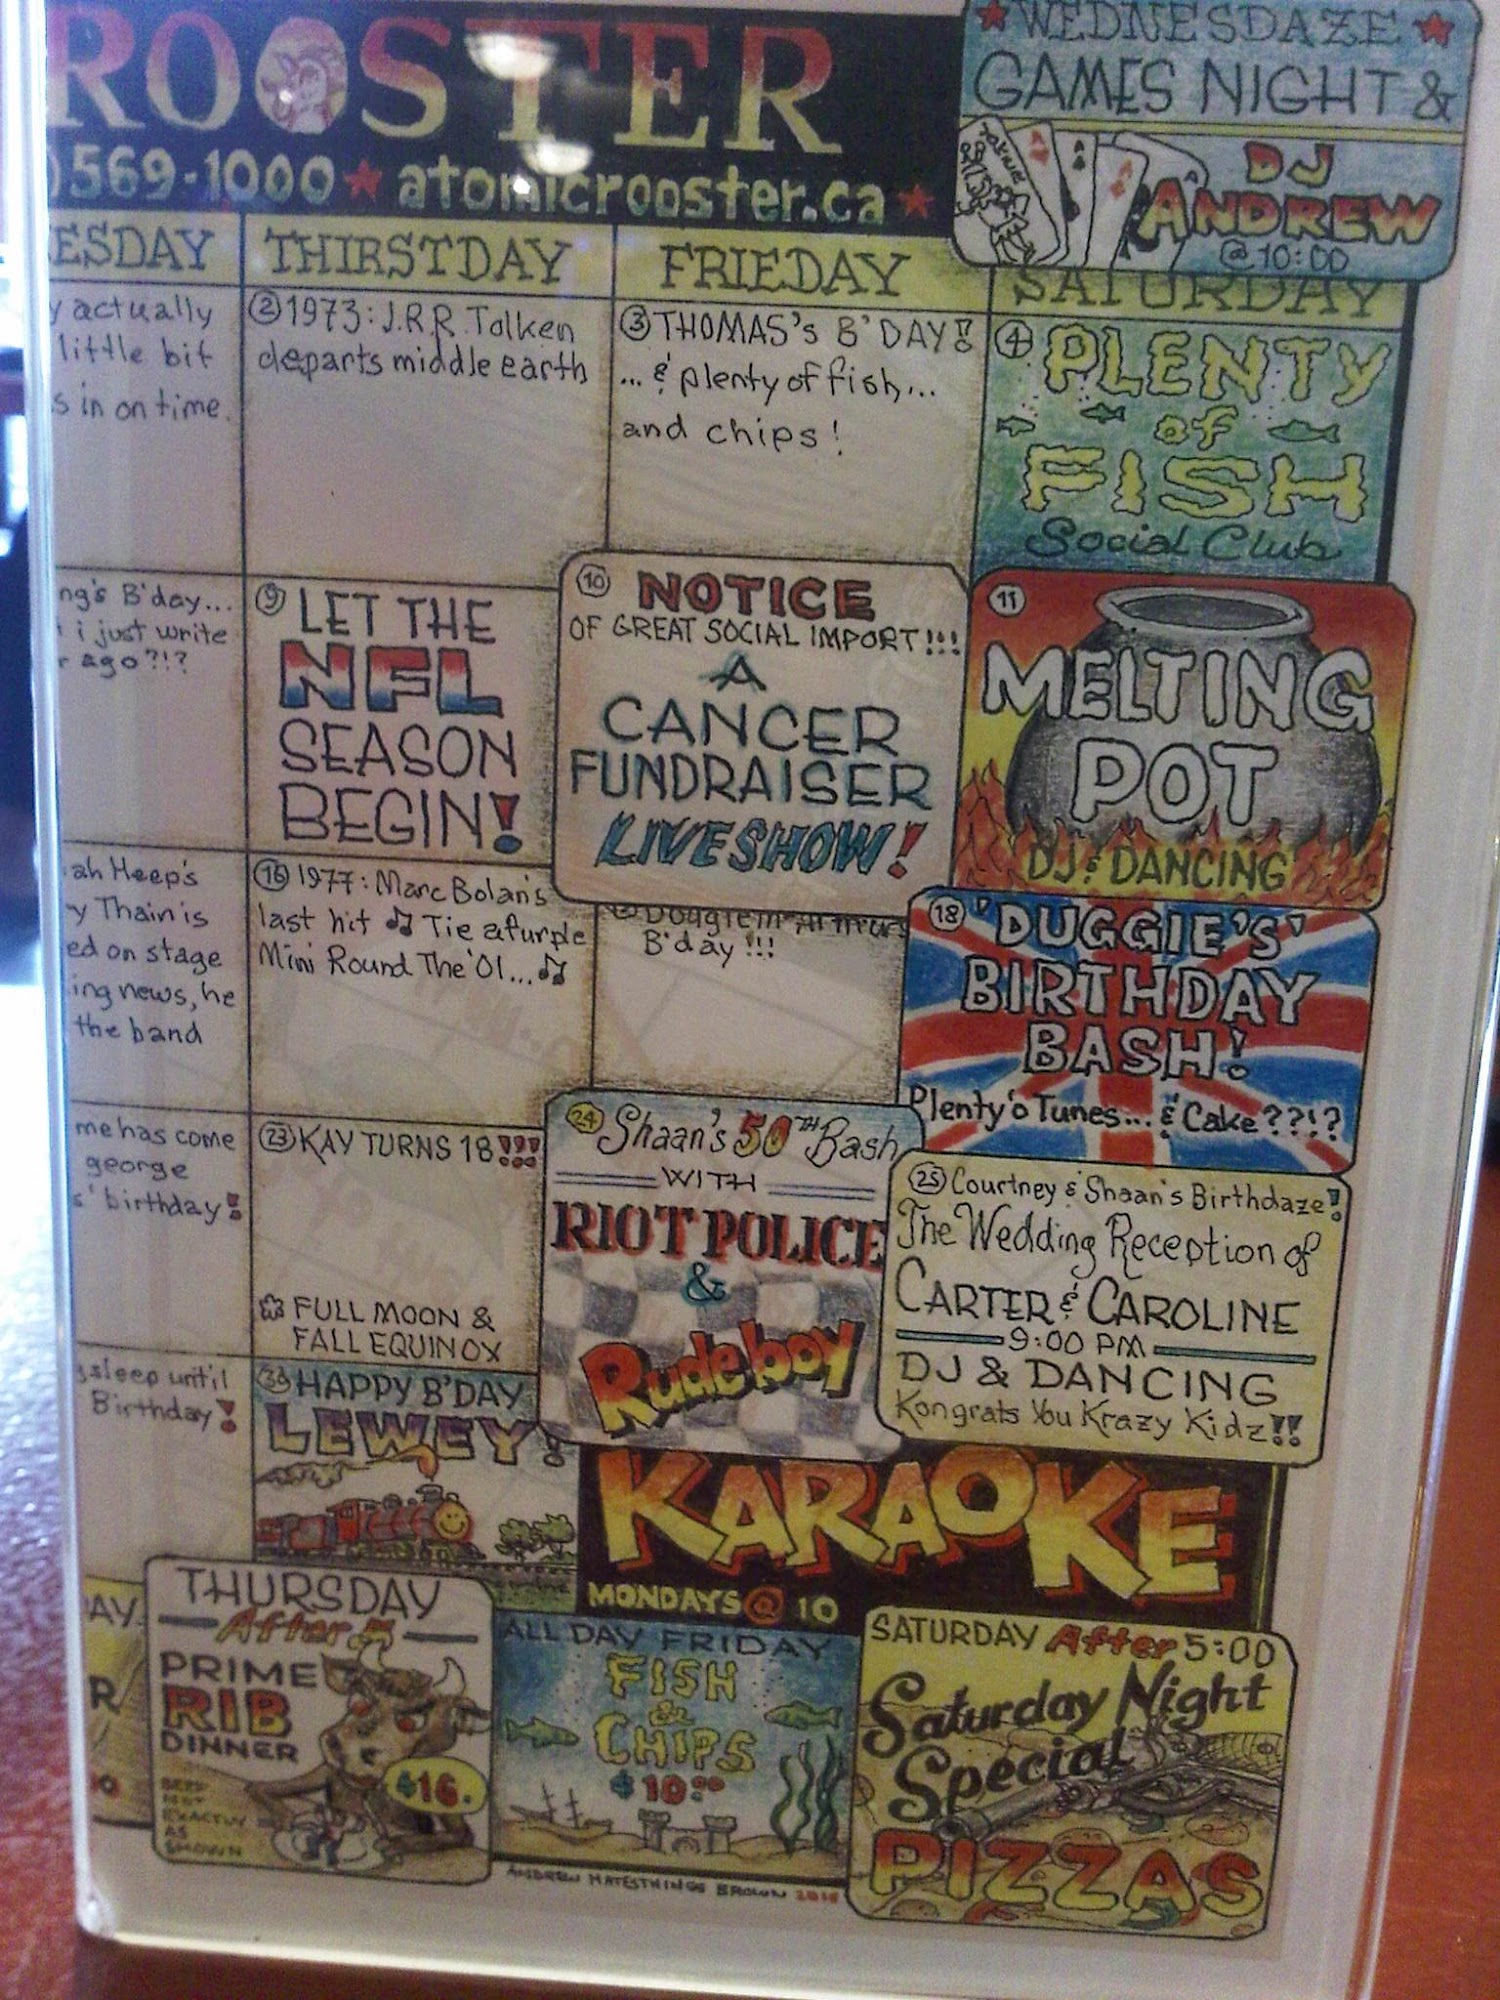 ROOSTER
)569-1000 ★ atomicrooster.ca ★
★ WEDNESDAZE ★
GAMES NIGHT &
DJ
ANDREW
@ 10:00
ESDAY
THIRSTDAY
FRIEDAY
SATURDAY
y actually
little bit
s in on time.
② 1973: J.R.R. Tolken
departs middle earth
③ THOMAS's B'DAY!!
...& plenty of fish...
and chips!
④ PLENTY
of
FISH
Social Club
ng's B'day...
i just write
r ago?!?
⑨ LET THE
NFL
SEASON
BEGIN!
⑩ NOTICE
OF GREAT SOCIAL IMPORT!!!
A
CANCER
FUNDRAISER
LIVE SHOW!
⑪ MELTING
POT
DJ & DANCING
ah Heep's
y Thain is
ed on stage
ing news, he
the band
⑯ 1977: Marc Bolan's
last hit ♫ Tie a Purple
Mini Round The '01...♫
Duggie
B'day!!!
⑱ 'DUGGIE'S'
BIRTHDAY
BASH!
Plenty'o Tunes...& Cake??!?
me has come
george
s' birthday!
㉓ KAY TURNS 18!!!
FULL MOON &
FALL EQUINOX
㉔ Shaan's 50TH Bash
WITH
RIOT POLICE
&
Rudeboy
㉕ Courtney & Shaan's Birthdaze!
The Wedding Reception of
CARTER & CAROLINE
9:00 PM
DJ & DANCING
Kongrats You Krazy Kidz!!
sleep until
Birthday!
㉚ HAPPY B'DAY
LEWEY!
KARAOKE
MONDAYS @ 10
AY
R
THURSDAY
After 5
PRIME
RIB
DINNER
$16.
BEEF
NOT
EXACTLY
AS
SHOWN
ALL DAY FRIDAY
FISH
&
CHIPS
$10.00
SATURDAY After 5:00
Saturday Night
Special
PIZZAS
ANDREW HATESTHINGS BROWN 2010